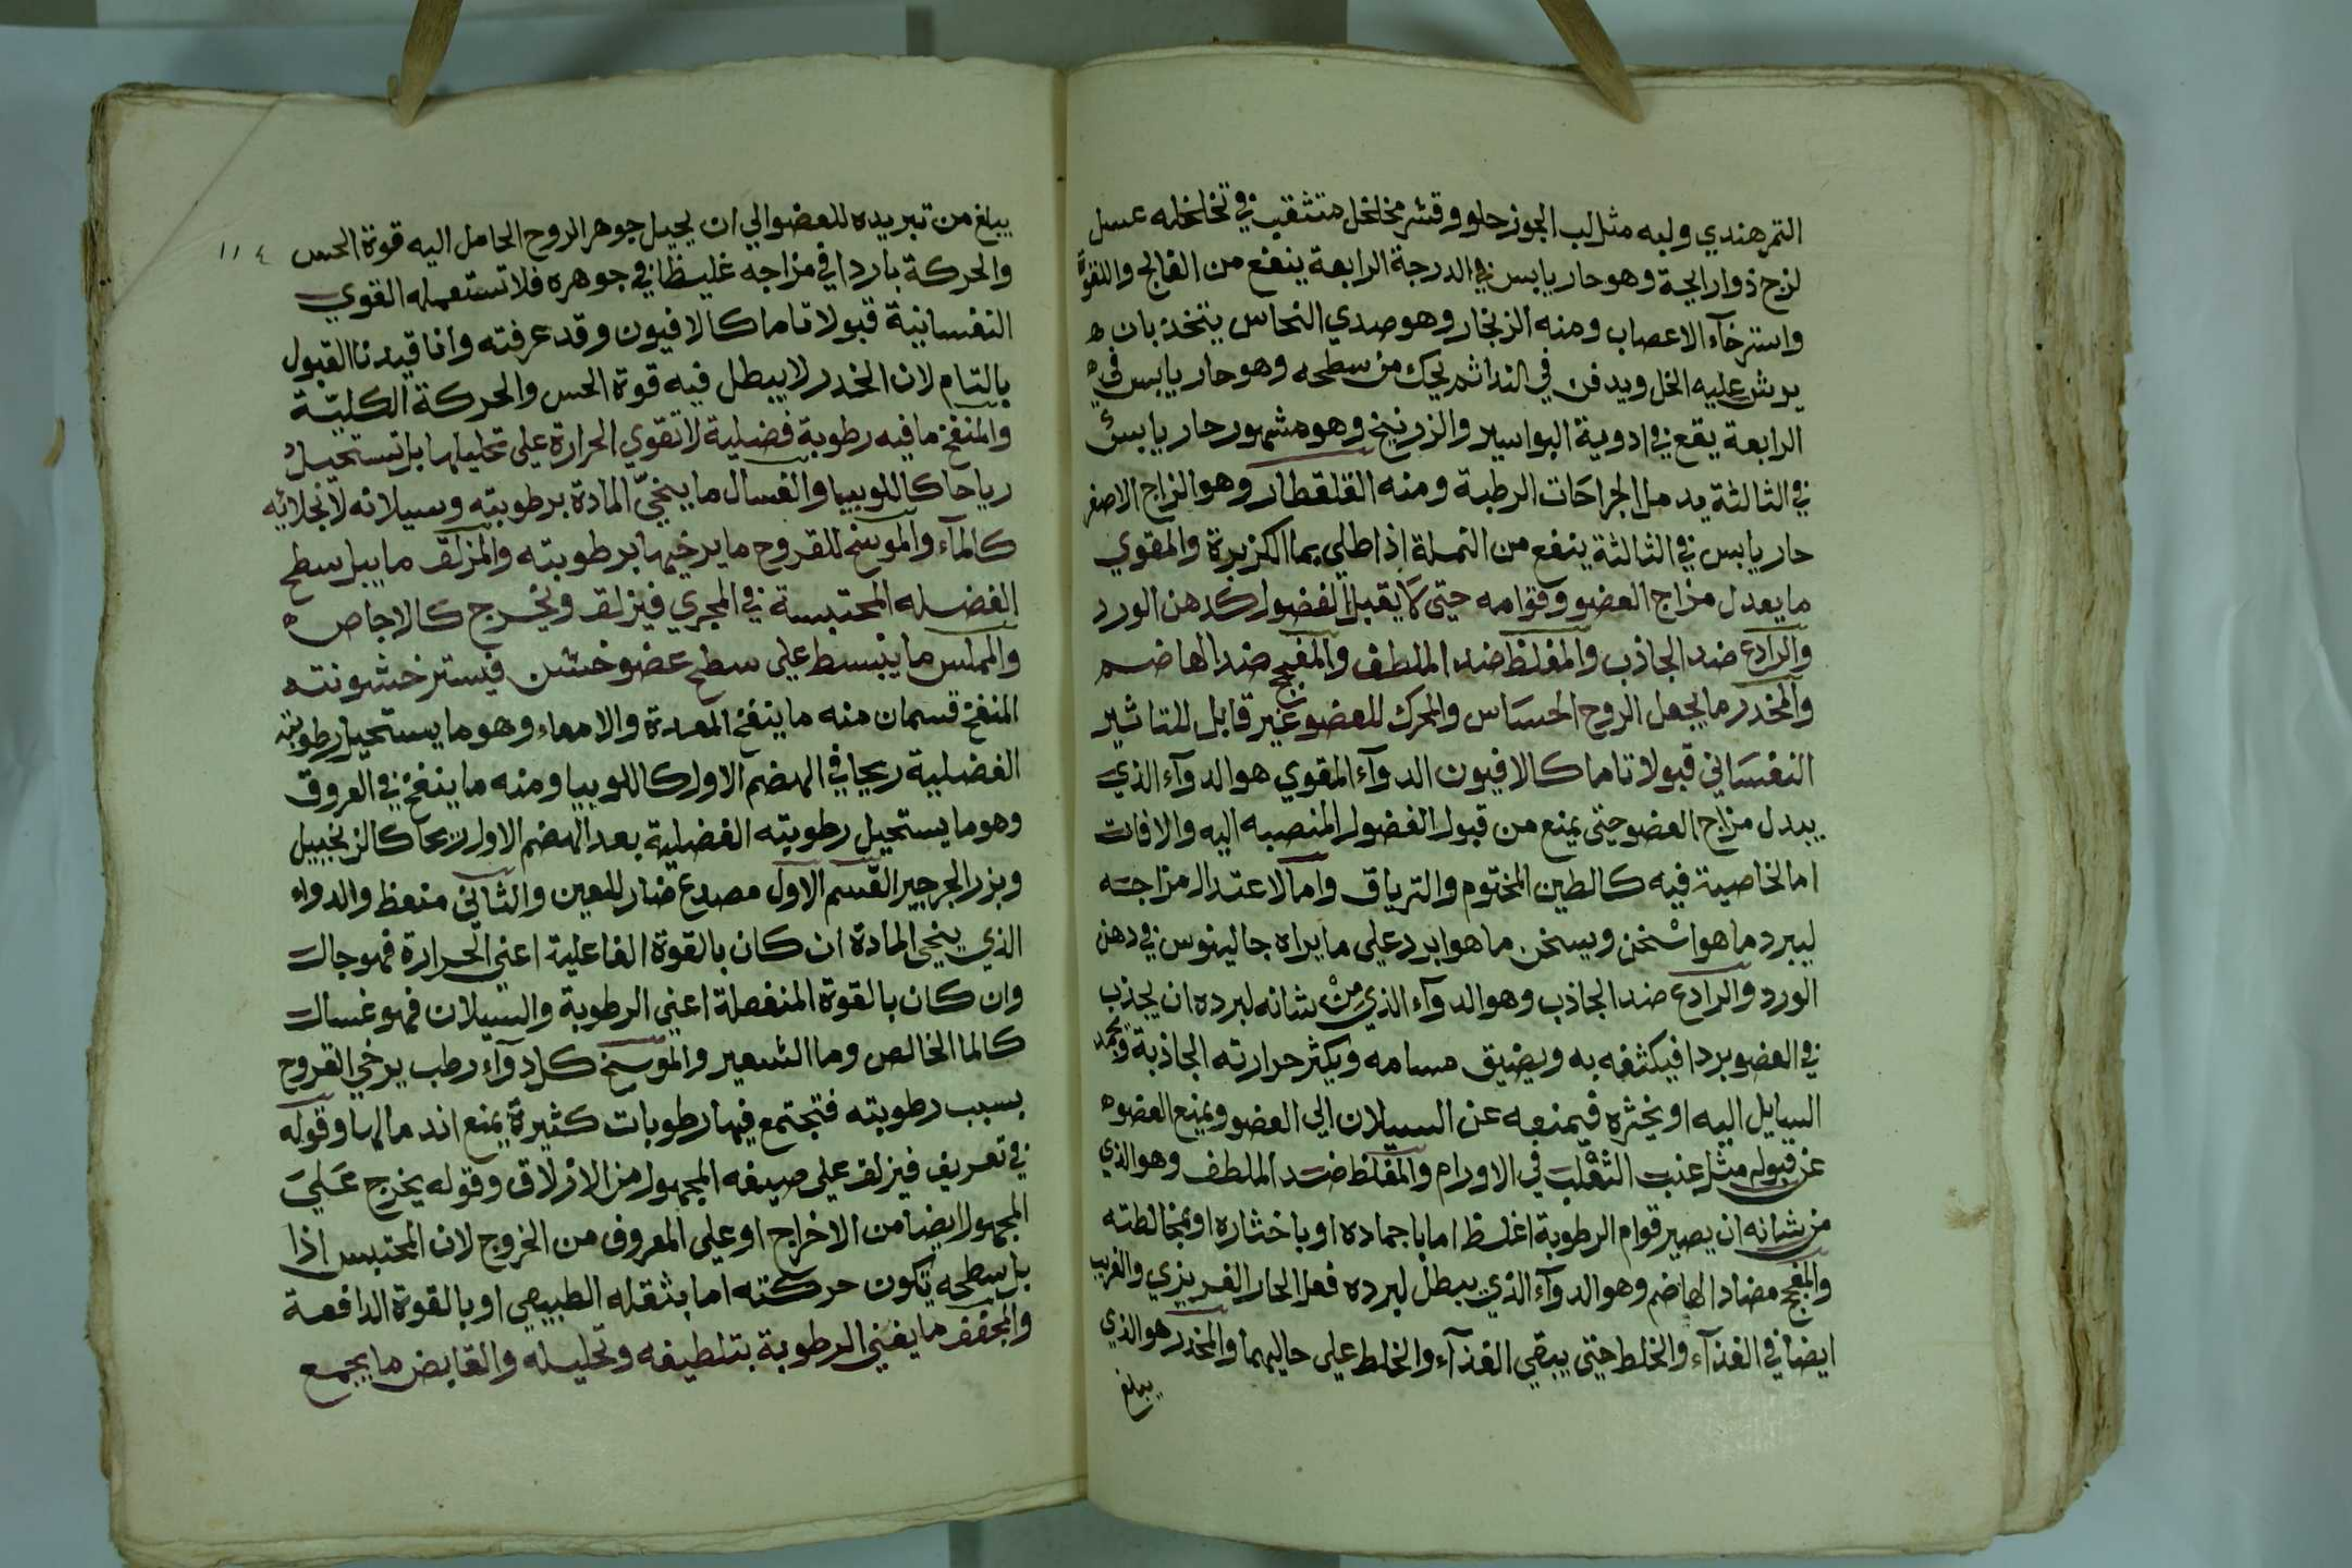 التمرهندي ولبه مثل لب الجوز حلو وقشر مخلخل متثقب في تخلخله عسل
لزج ذو رايحة وهو حار يابس في الدرجة الرابعة ينفع من الفالج واللقوة
واسترخآء الاعصاب ومنه الزنجار وهو صدي النحاس يتخذ بان
يرش عليه الخل ويدفن في الندا ثم يحك من سطحه وهو حار يابس في
الرابعة يقع في ادوية البواسير والزرنيخ وهو مشهور حار يابس
في الثالثة يدمل الجراحات الرطبة ومنه القلقطار وهو الزاج الاصفر
حار يابس في الثالثة ينفع من النملة اذا طلي بما الكزبرة والمقوي
ما يعدل مزاج العضو وقوامه حتى لا يقبل الفضول كدهن الورد
والرادع ضد الجاذب والمغلظ ضد الملطف والمفجج ضد الهاضم
والمخدر ما يجعل الروح الحساس والمحرك للعضو غير قابل للتاثير
النفساني قبولا تاما كالافيون الدوآء المقوي هو الدوآء الذي
يبدل مزاج العضو حتى يمنع من قبول الفضول المنصبه اليه والافات
اما لخاصية فيه كالطين المختوم والترياق واما لاعتدال مزاجه
ليبرد ما هو اسخن ويسخن ما هو ابرد على ما يراه جالينوس في دهن
الورد والرادع ضد الجاذب وهو الدوآء الذي من شانه لبرده ان يجذب
في العضو بردا فيكثفه به ويضيق مسامه ويكثر حرارته الجاذبة ويجمد
السايل اليه او يخثره فيمنعه عن السيلان الي العضو ويمنع العضو
عن قبوله مثل عنب الثعلب في الاورام والمغلظ ضد الملطف وهو الذي
من شانه ان يصير قوام الرطوبة اغلظ اما باجماده او باخثاره او بمخالطته
والمفجج مضاد الهاضم وهو الدوآء الذي يبطل لبرده فعل الحار الغريزي والغريب
ايضا في الغذآء والخلط حتى يبقي الغذآء والخلط على حاليهما والمخدر هو الذي
يبلغ
١١٤
يبلغ من تبريده للعضو الي ان يحيل جوهر الروح الحامل اليه قوة الحس
والحركة باردا في مزاجه غليظا في جوهره فلا تستعمله القوي
النفسانية قبولا تاما كالافيون وقد عرفته وانا قيدنا القبول
بالتام لان الخدر لا يبطل فيه قوة الحس والحركة الكليّة
والمنفخ ما فيه رطوبة فضلية لا تقوي الحرارة على تحليلها بل تستحيل
رياحا كاللوبيا والغسال ما ينحيّ المادة برطوبته وسيلانه لا بجلائه
كالمآء والموسخ للقروح ما يرخيها برطوبته والمزلق ما يبل سطح
الفضله المحتبسة في المجري فيزلق ويخرج كالاجاص
والمملس ما ينبسط علي سطح عضو خشن فيستر خشونته
المنفخ قسمان منه ما ينفخ المعدة والامعاء وهو ما يستحيل رطوبته
الفضلية ريحا في الهضم الاول كاللوبيا ومنه ما ينفخ في العروق
وهو ما يستحيل رطوبته الفضلية بعد الهضم الاول ريحا كالزنجبيل
وبزر الجرجير القسم الاول مصدع ضار للعين والثاني منعظ والدواء
الذي ينحي المادة ان كان بالقوة الفاعلية اعني الحرارة فهو جال
وان كان بالقوة المنفصلة اعني الرطوبة والسيلان فهو غسال
كالما الخالص وما الشعير والموسخ كل دوآء رطب يرخي القروح
بسبب رطوبته فتجتمع فيها رطوبات كثيرة يمنع اندمالها وقوله
في تعريف فيزلق علي صيغه المجهول من الازلاق وقوله يخرج عَليَ
المجهول ايضا من الاخراج او علي المعروف من الخروج لان المحتبس اذا
بل سطحه تكون حركته اما بثقله الطبيعي او بالقوة الدافعة
والمجفف ما يفني الرطوبة بتلطيفه وتحليله والقابض ما يجمع